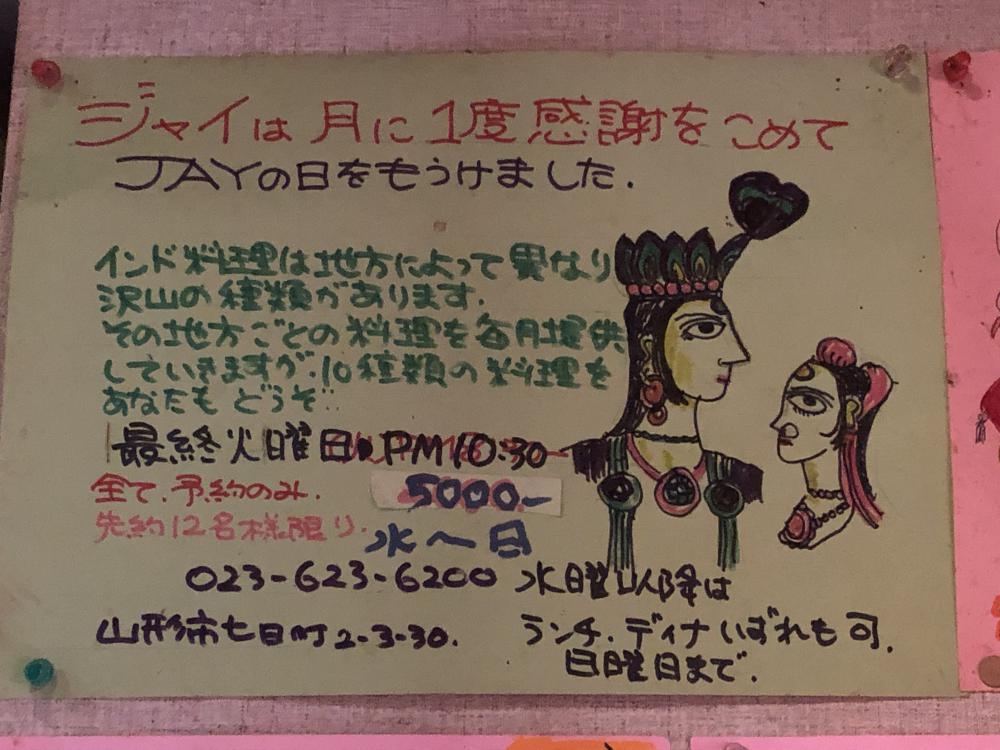 ジャイは月に1度感謝をこめて
JAYの日をもうけました.
インド料理は地方によって異なり
沢山の種類があります.
その地方ごとの料理を毎月提供
していきますが.10種類の料理を
あなたもどうぞ..
最終火曜日 PM10:30
全て.予約のみ.
5000-
先約12名様限り.
水〜日
023-623-6200
水曜以降は
山形市七日町2-3-30.
ランチ.ディナいずれも可.
日曜日まで.